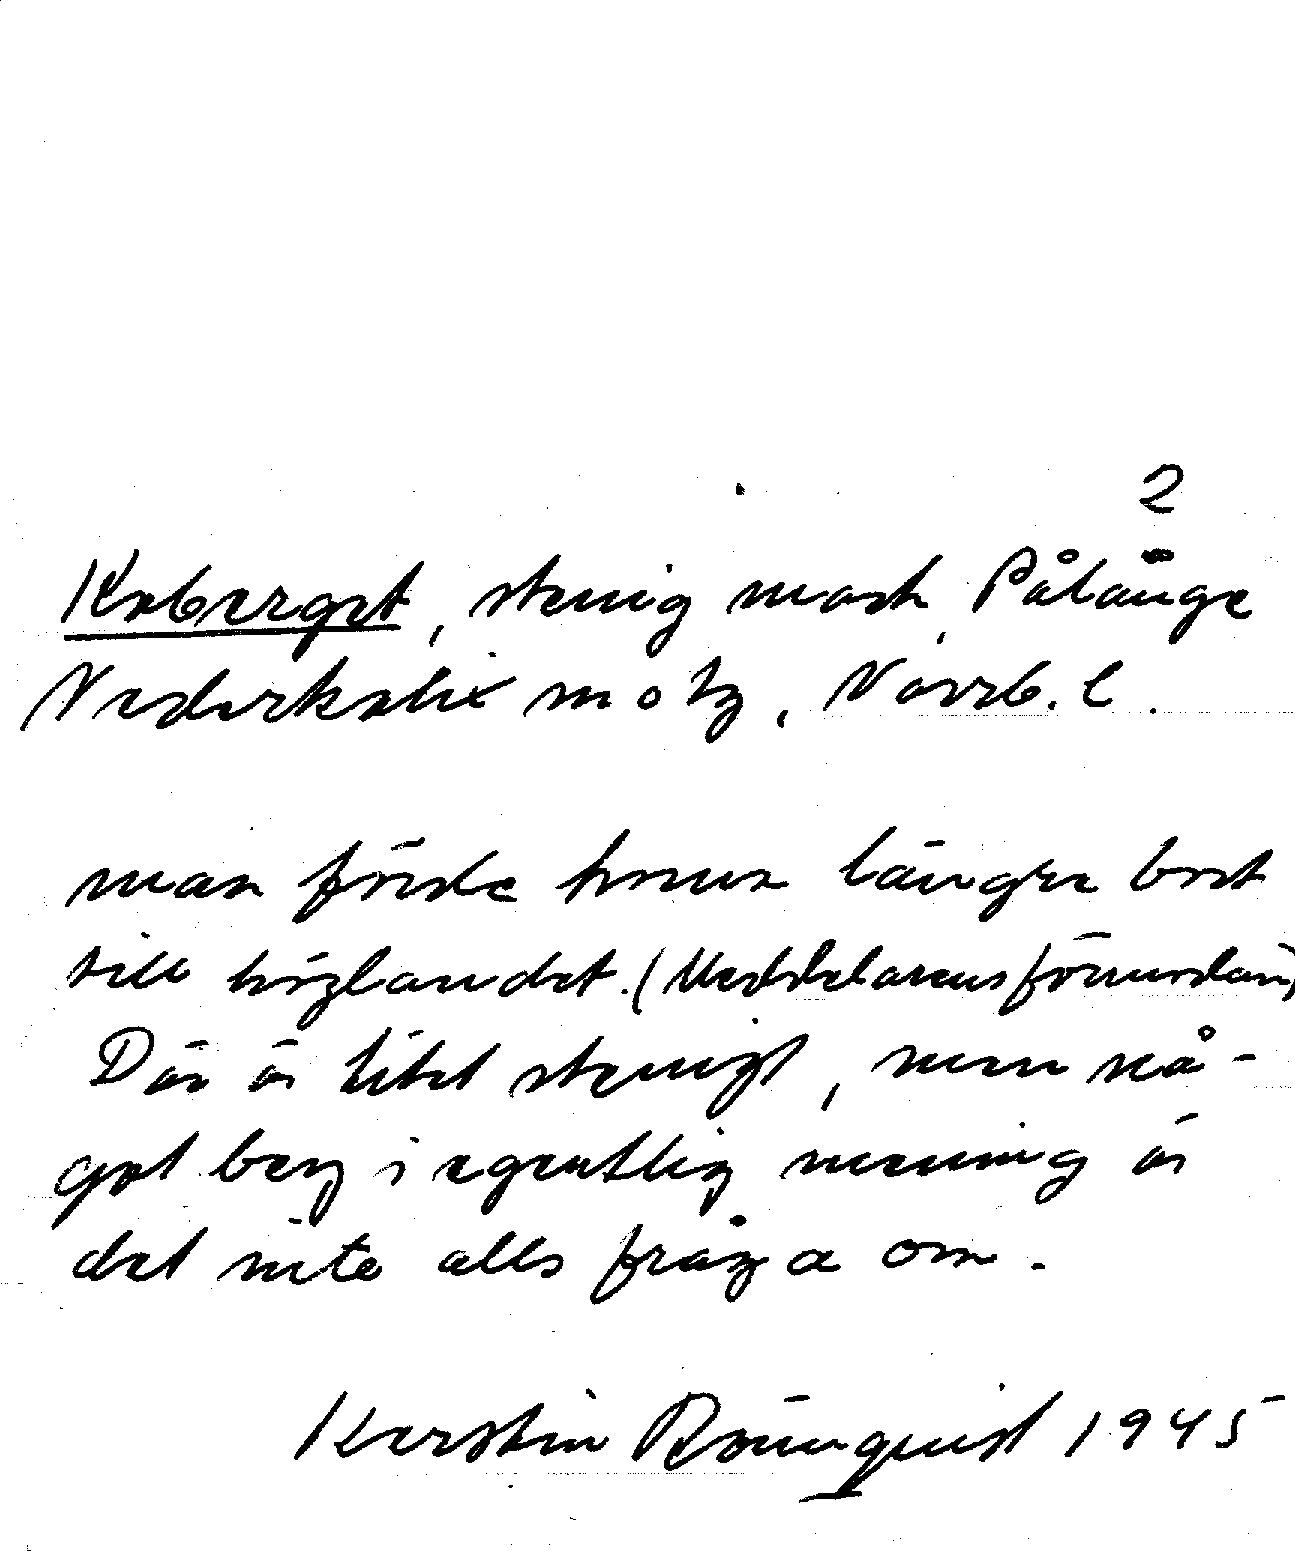 2
Koberget, stenig mark, Pålänge
Nederkalix sn o tg, Norrb. l.
man förde honom längre bort
till höglandet. (Meddelarens förmodan)
Där är litet stenigt, men nå-
got berg i egentlig mening är
det inte alls fråga om.
Kerstin Rönnquist 1945